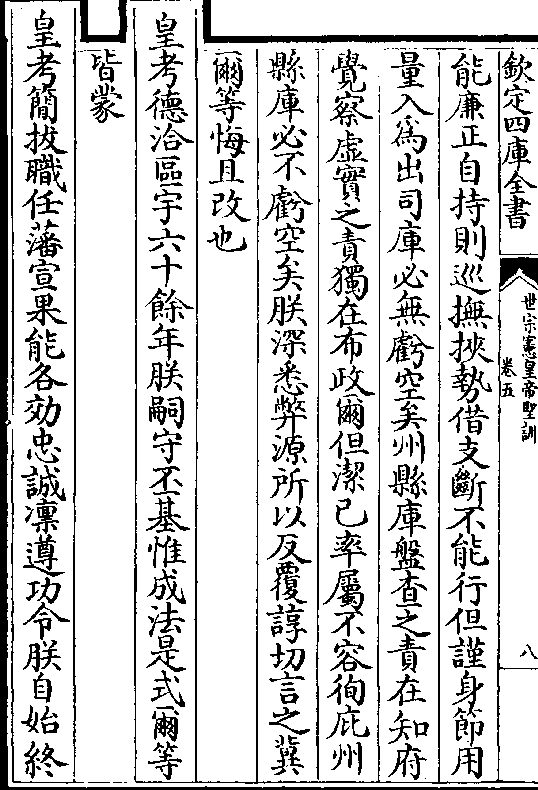 欽定四庫全書
世宗憲皇帝聖訓
卷五
八
能廉正自持則巡撫挾勢借支斷不能行但謹身節用
量入為出司庫必無虧空矣州縣庫盤查之責在知府
覺察虛實之責獨在布政爾但潔己率屬不容徇庇州
縣庫必不虧空矣朕深悉弊源所以反覆諄切言之冀
爾等悔且改也
皇考德洽區宇六十餘年朕嗣守丕基惟成法是式爾等
皆蒙
皇考簡拔職任藩宣果能各効忠誠凛遵功令朕自始終